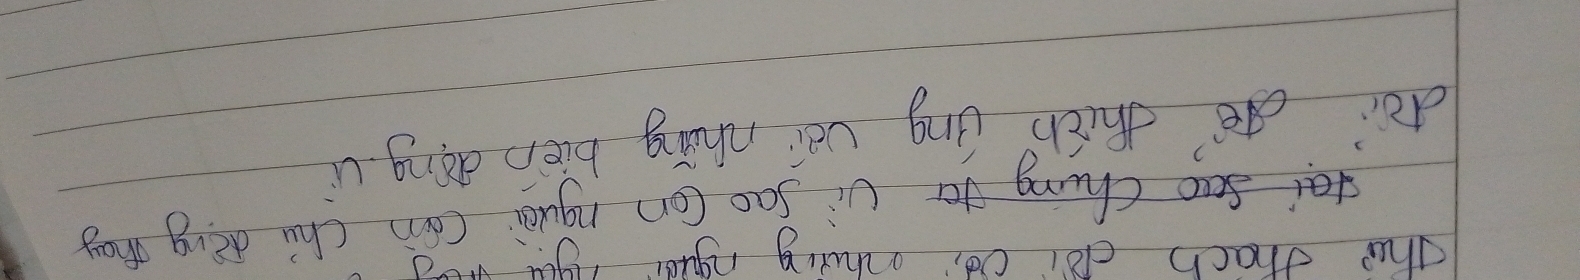 thử thách đối với những người
tại sao chúng ta vì sao con người cần chủ động thay
đổi để thích ứng với những biến động vì